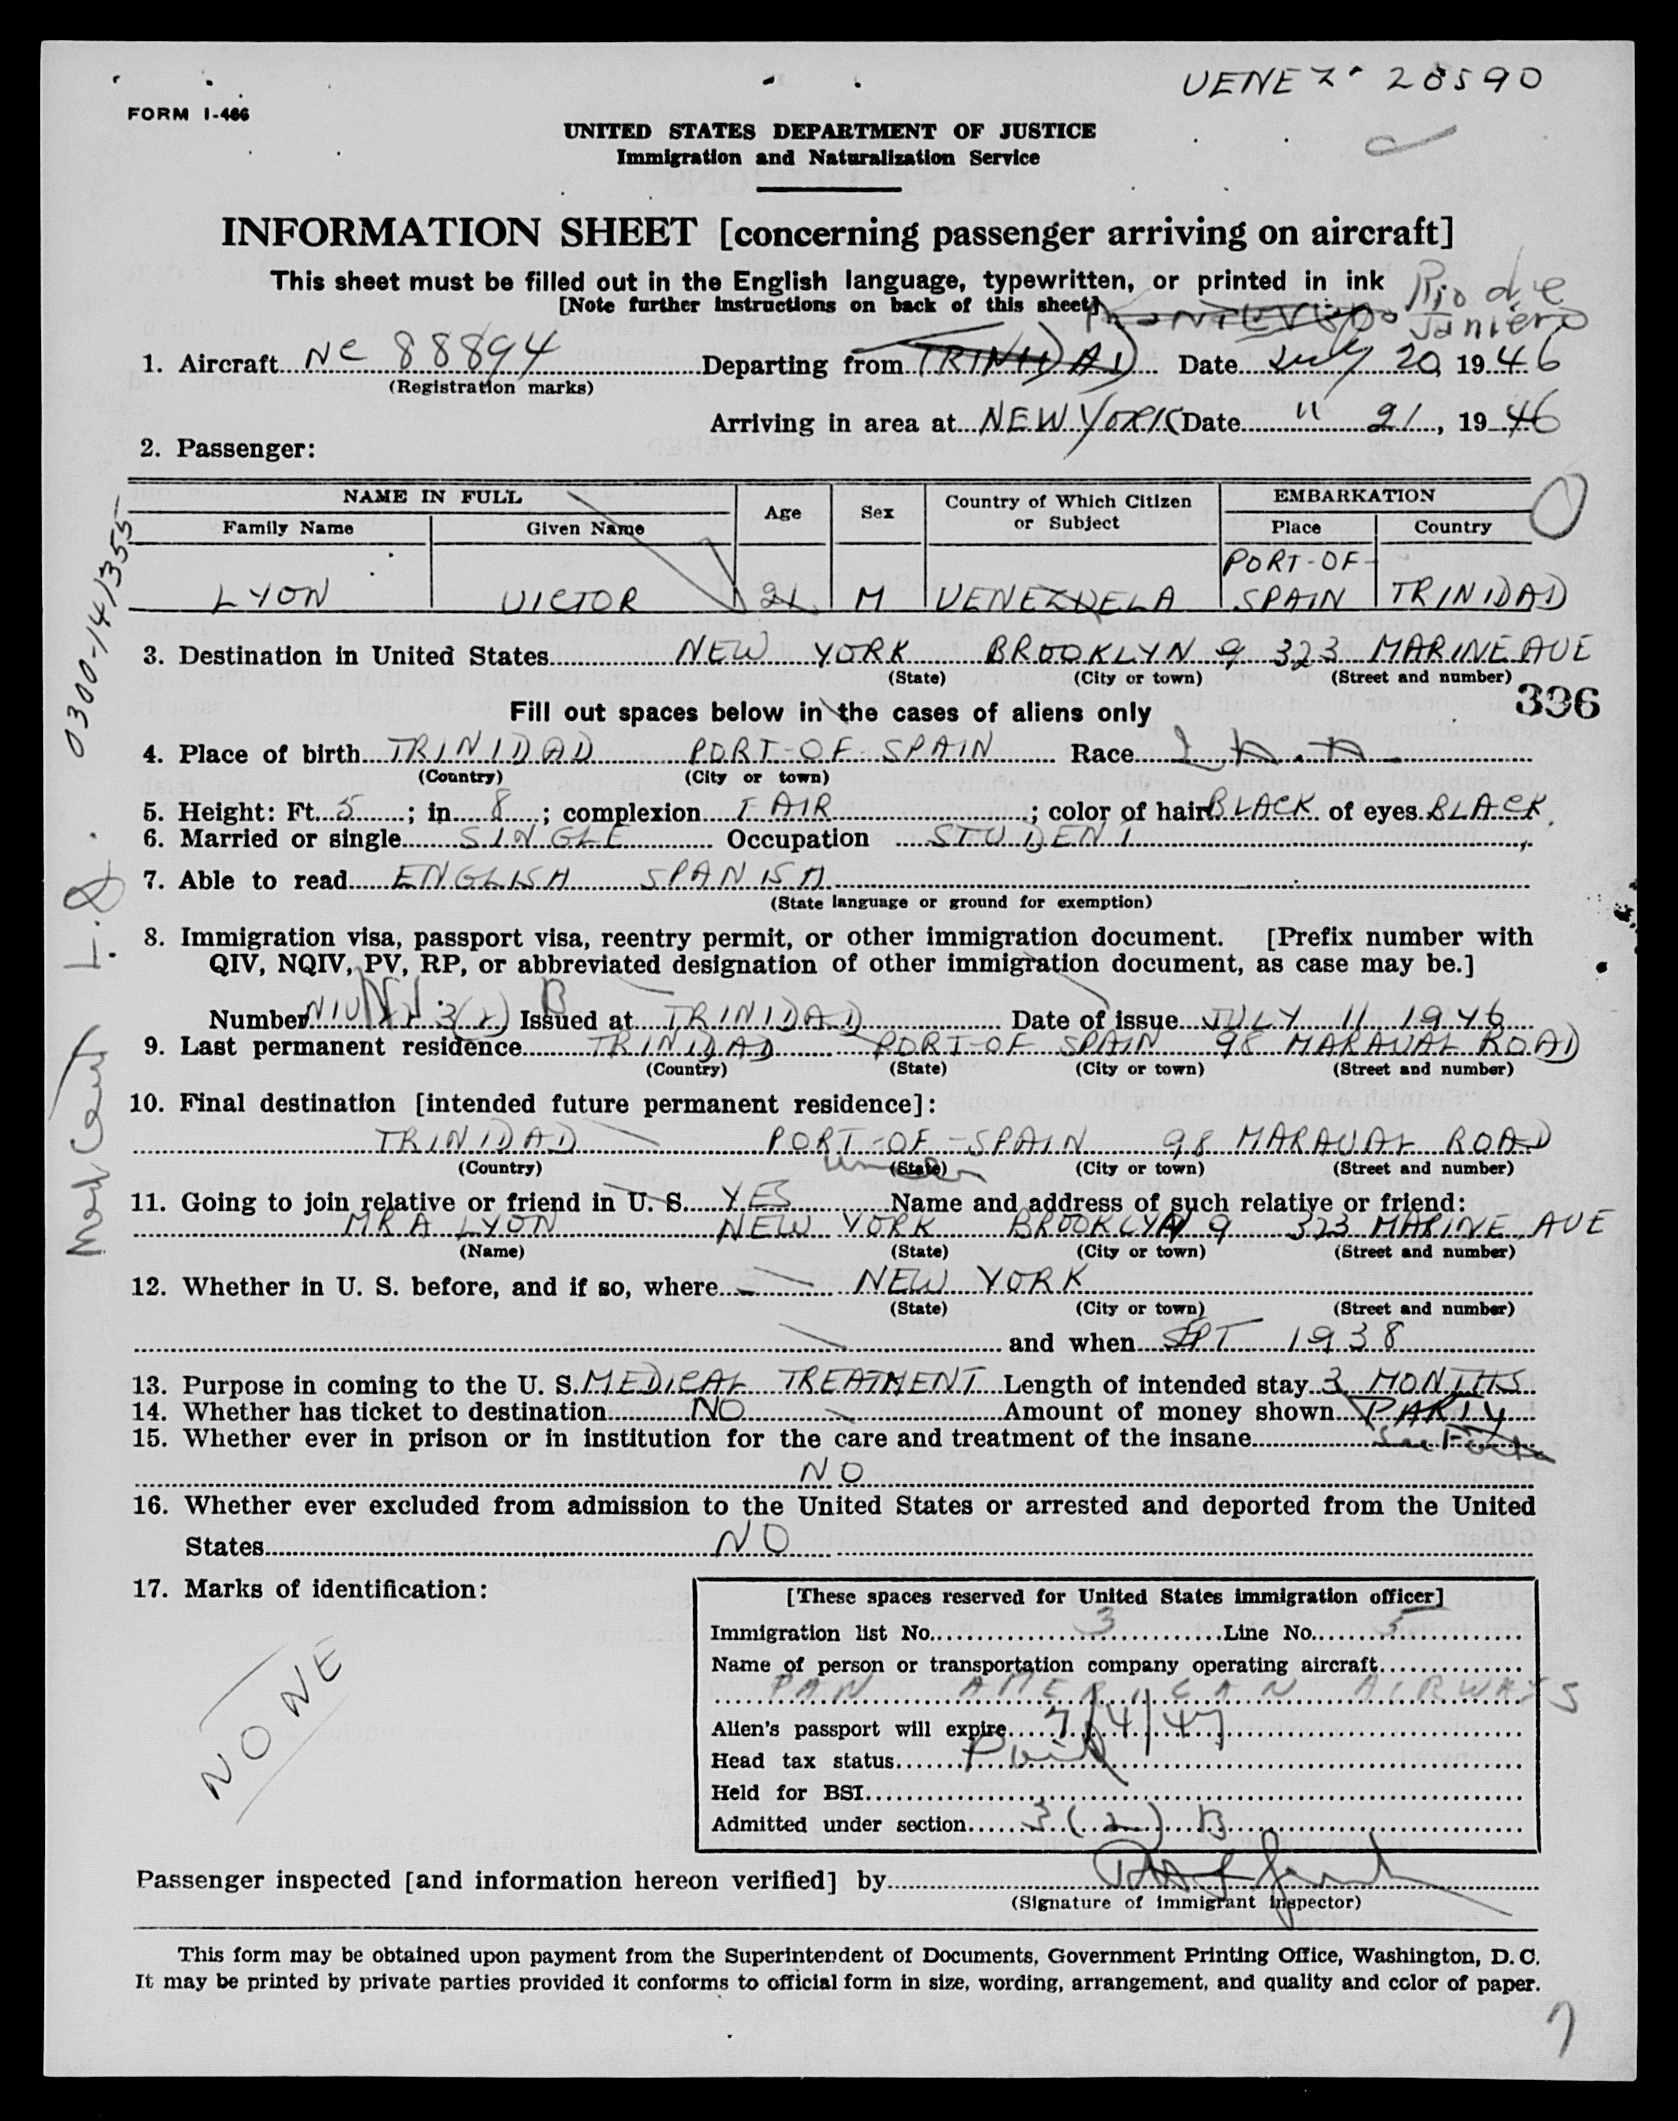 VENEZ. 20590
FORM I-466
UNITED STATES DEPARTMENT OF JUSTICE
Immigration and Naturalization Service
INFORMATION SHEET [concerning passenger arriving on aircraft]
This sheet must be filled out in the English language, typewritten, or printed in ink
Rio de
[Note further instructions on back of this sheet]
MONTEVIDEO Janiero
1. Aircraft NC 88894 Departing from TRINIDAD Date July 20, 1946
(Registration marks)
Arriving in area at NEW YORK Date " 21, 1946
2. Passenger:
NAME IN FULL Age Sex Country of Which Citizen or Subject EMBARKATION
Family Name Given Name Place Country
PORT-OF-
LYON VICTOR 21 M VENEZUELA SPAIN TRINIDAD
0300-141355
3. Destination in United States NEW YORK BROOKLYN 9 323 MARINE AVE
(State) (City or town) (Street and number)
396
Fill out spaces below in the cases of aliens only
4. Place of birth TRINIDAD PORT-OF-SPAIN Race
(Country) (City or town)
5. Height: Ft. 5; in. 8; complexion FAIR; color of hair BLACK of eyes BLACK
6. Married or single SINGLE Occupation STUDENT
7. Able to read ENGLISH SPANISH
(State language or ground for exemption)
8. Immigration visa, passport visa, reentry permit, or other immigration document. [Prefix number with
QIV, NQIV, PV, RP, or abbreviated designation of other immigration document, as case may be.]
Number 3(2) B Issued at TRINIDAD Date of issue JULY 11 1946
9. Last permanent residence TRINIDAD PORT-OF SPAIN 98 MARAVAL ROAD
(Country) (State) (City or town) (Street and number)
10. Final destination [intended future permanent residence]:
TRINIDAD PORT-OF-SPAIN 98 MARAVAL ROAD
(Country) (State) (City or town) (Street and number)
11. Going to join relative or friend in U. S. YES Name and address of such relative or friend:
MR A LYON NEW YORK BROOKLYN 9 323 MARINE AVE
(Name) (State) (City or town) (Street and number)
12. Whether in U. S. before, and if so, where NEW YORK
(State) (City or town) (Street and number)
and when SEPT 1938
13. Purpose in coming to the U. S. MEDICAL TREATMENT Length of intended stay 3 MONTHS
14. Whether has ticket to destination NO Amount of money shown PARTY
15. Whether ever in prison or in institution for the care and treatment of the insane
NO
16. Whether ever excluded from admission to the United States or arrested and deported from the United
States NO
17. Marks of identification:
NONE
[These spaces reserved for United States immigration officer]
Immigration list No. 3 Line No. 5
Name of person or transportation company operating aircraft
PAN AMERICAN AIRWAYS
Alien's passport will expire 7/4/47
Head tax status Paid
Held for BSI
Admitted under section 3(2) B
Passenger inspected [and information hereon verified] by
(Signature of immigrant inspector)
This form may be obtained upon payment from the Superintendent of Documents, Government Printing Office, Washington, D. C.
It may be printed by private parties provided it conforms to official form in size, wording, arrangement, and quality and color of paper.